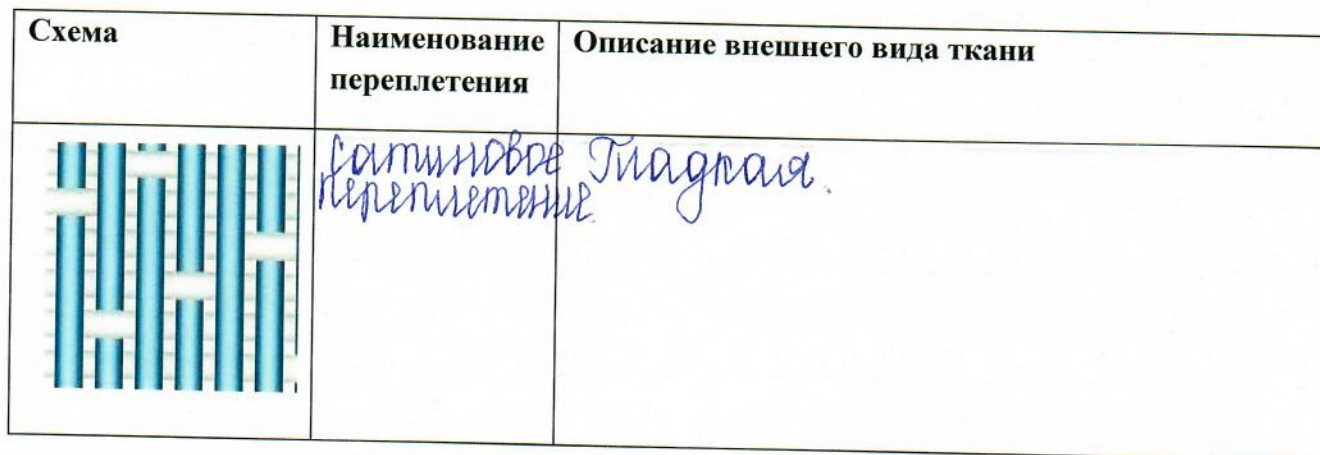 Схема
Наименование
переплетения
Описание внешнего вида ткани
сатиновое
переплетение
Гладкая.